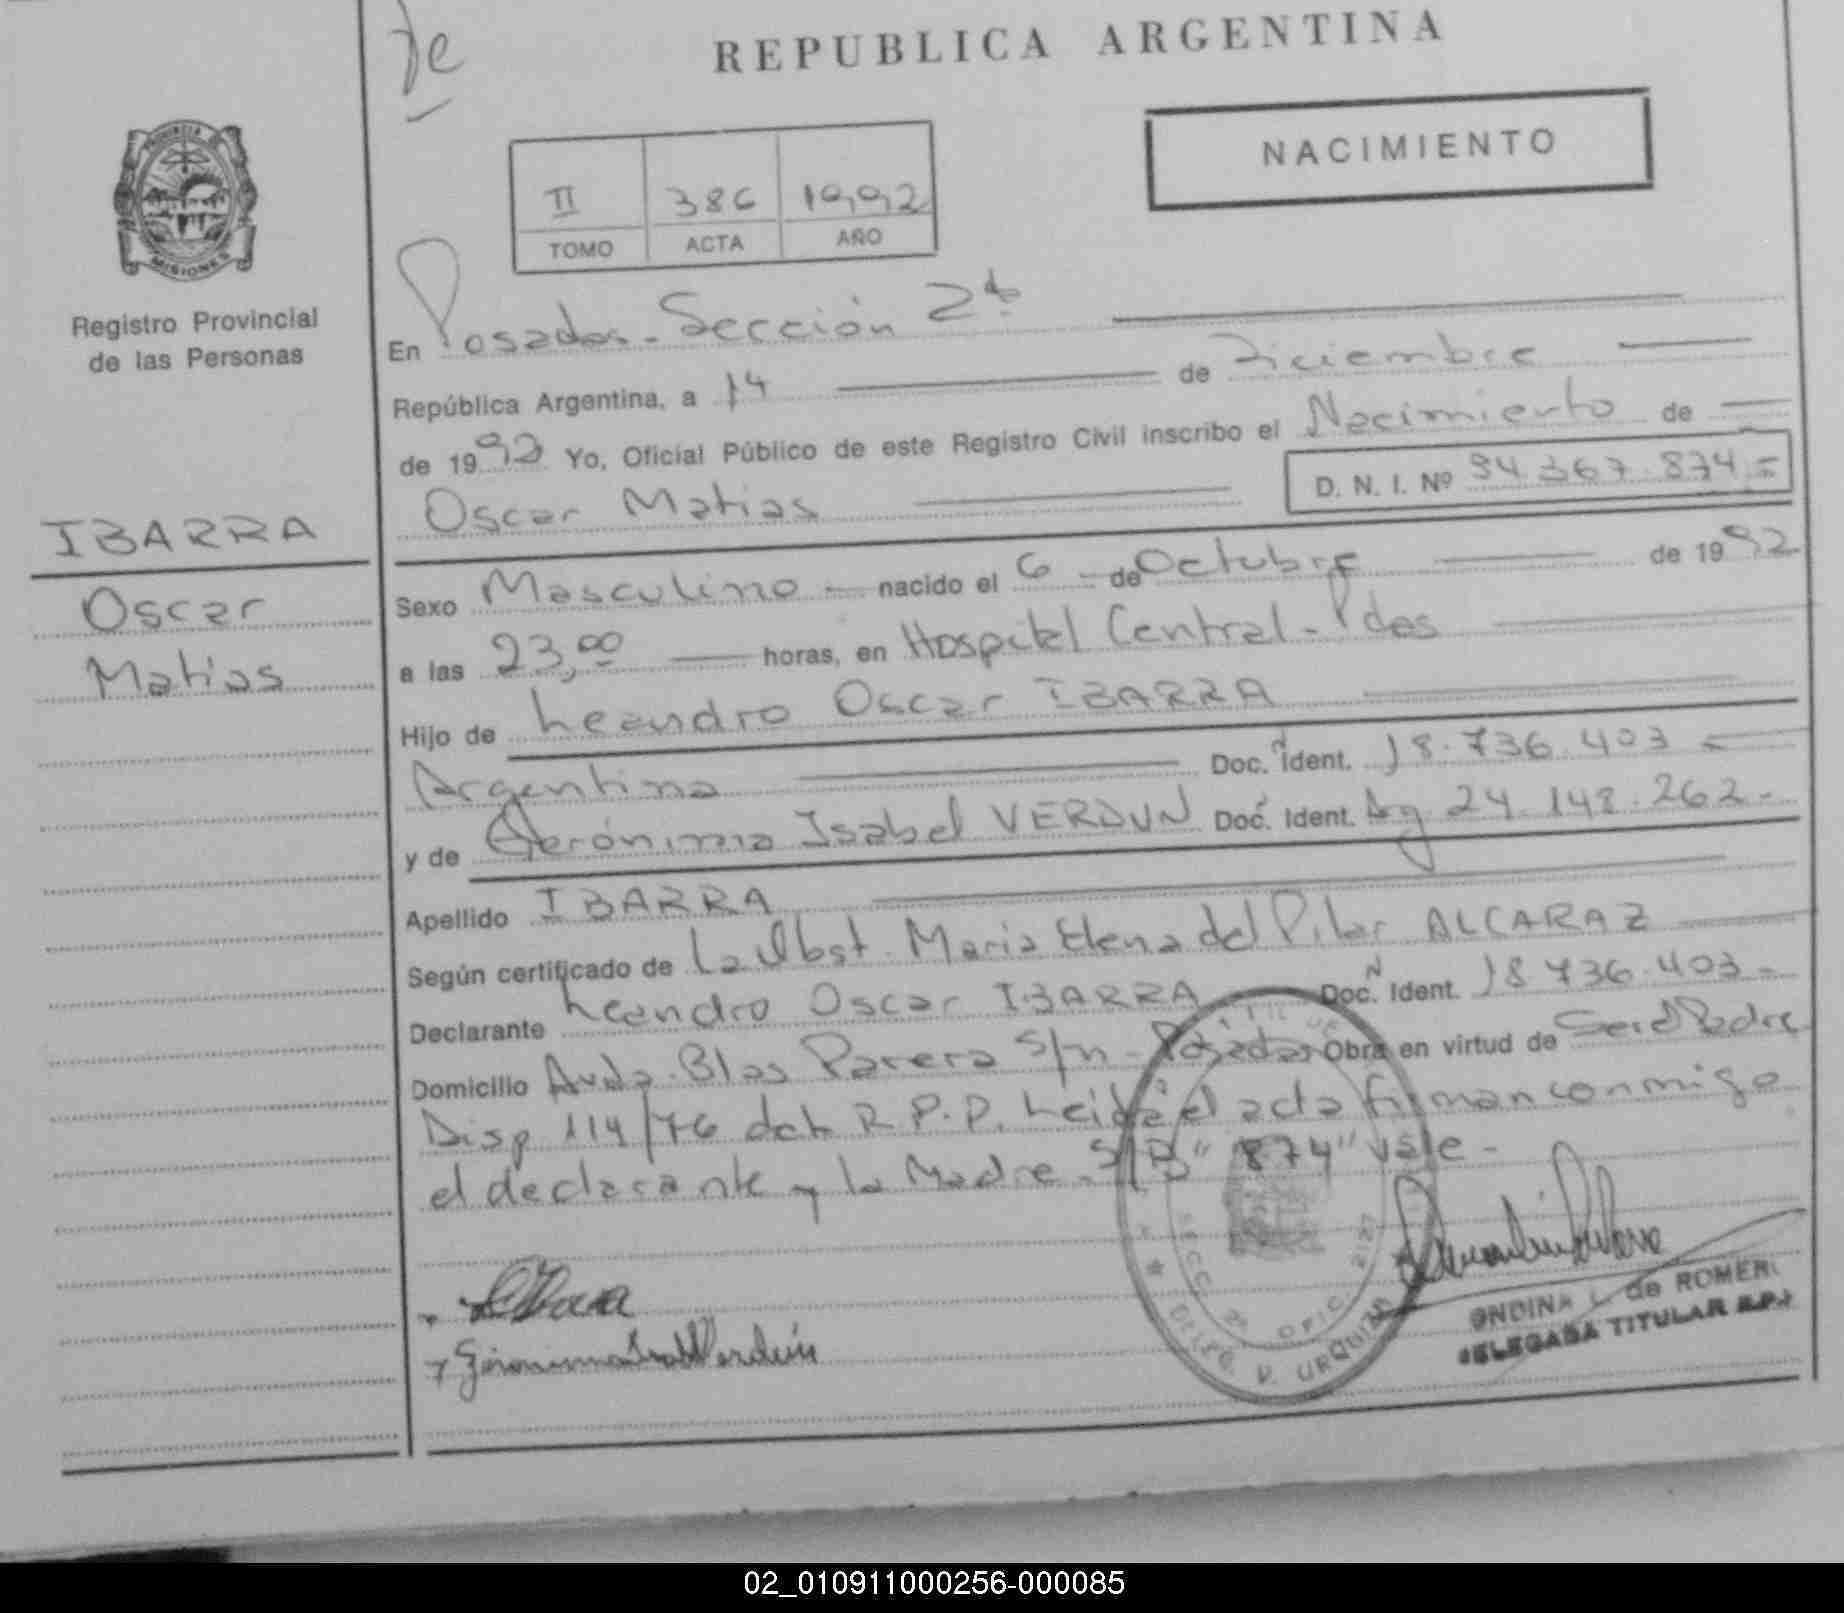 REPUBLICA ARGENTINA
NACIMIENTO
II 386 1992
TOMO ACTA AÑO
PROVINCIA DE
MISIONES
Registro Provincial
de las Personas
IBARRA
Oscar
Matias
En Posadas - Sección 2ª
República Argentina, a 14 de Diciembre
de 1992 Yo, Oficial Público de este Registro Civil inscribo el Nacimiento de
Oscar Matias D. N. I. Nº 34.367.874 =
Sexo Masculino nacido el 6 de Octubre de 1992
a las 23,00 horas, en Hospital Central - Pdas
Hijo de Leandro Oscar IBARRA
Argentina Doc. Ident. 18.736.403 -
y de Gerónima Isabel VERDUN Doc. Ident. Arg 24.148.262 -
Apellido IBARRA
Según certificado de La Obst. Maria Elena del Pilar ALCARAZ
Declarante Leandro Oscar IBARRA Doc. Ident. 18.736.403 -
Domicilio Avda. Blas Parera s/n - Posadas Obra en virtud de Ser el Padre
Disp 114/76 del R.P.P. Leida el acta firman conmigo
el declarante y la Madre. S/B "874" vale -
Geronima Isabel Verdún
SECC. 2ª OFIC. 2127
DELEG. V. URQUIZA
ONDINA L. de ROMER
DELEGADA TITULAR R.P.P.
02_010911000256-000085